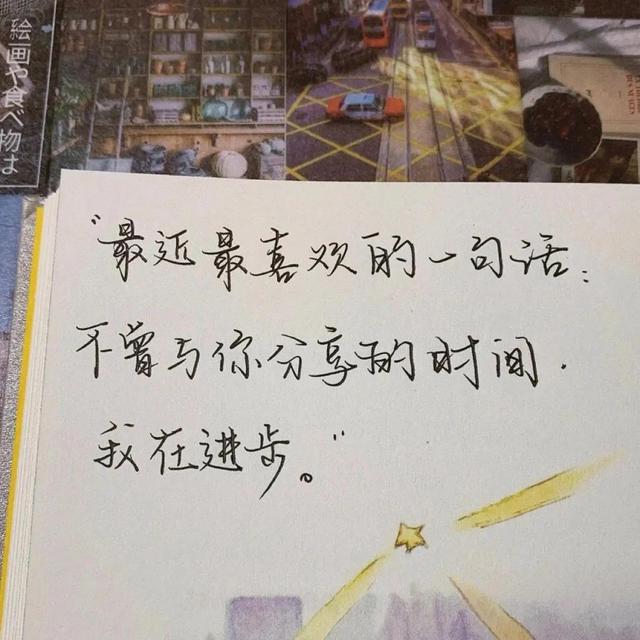 絵画や食べ物は
“最近最喜欢的一句话：
不曾与你分享的时间．
我在进步。”